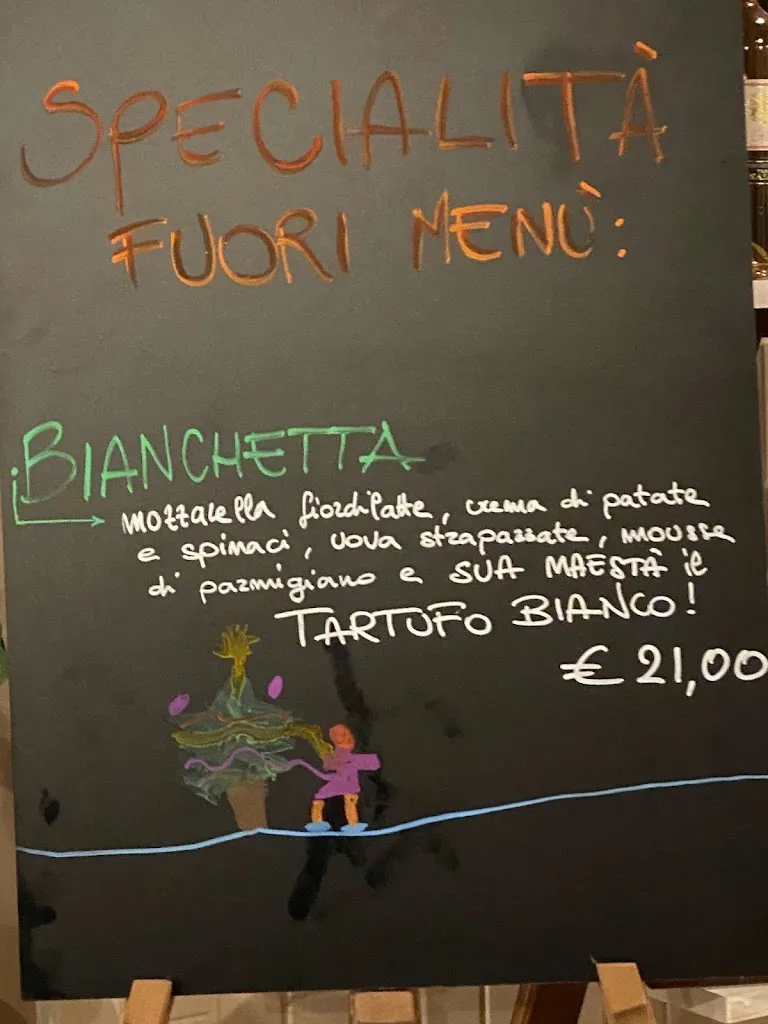 SPECIALITÀ
FUORI MENÙ:
BIANCHETTA
mozzarella fiordilatte, crema di patate
e spinaci, uova strapazzate, mousse
di parmigiano e SUA MAESTÀ il
TARTUFO BIANCO!
€ 21,00